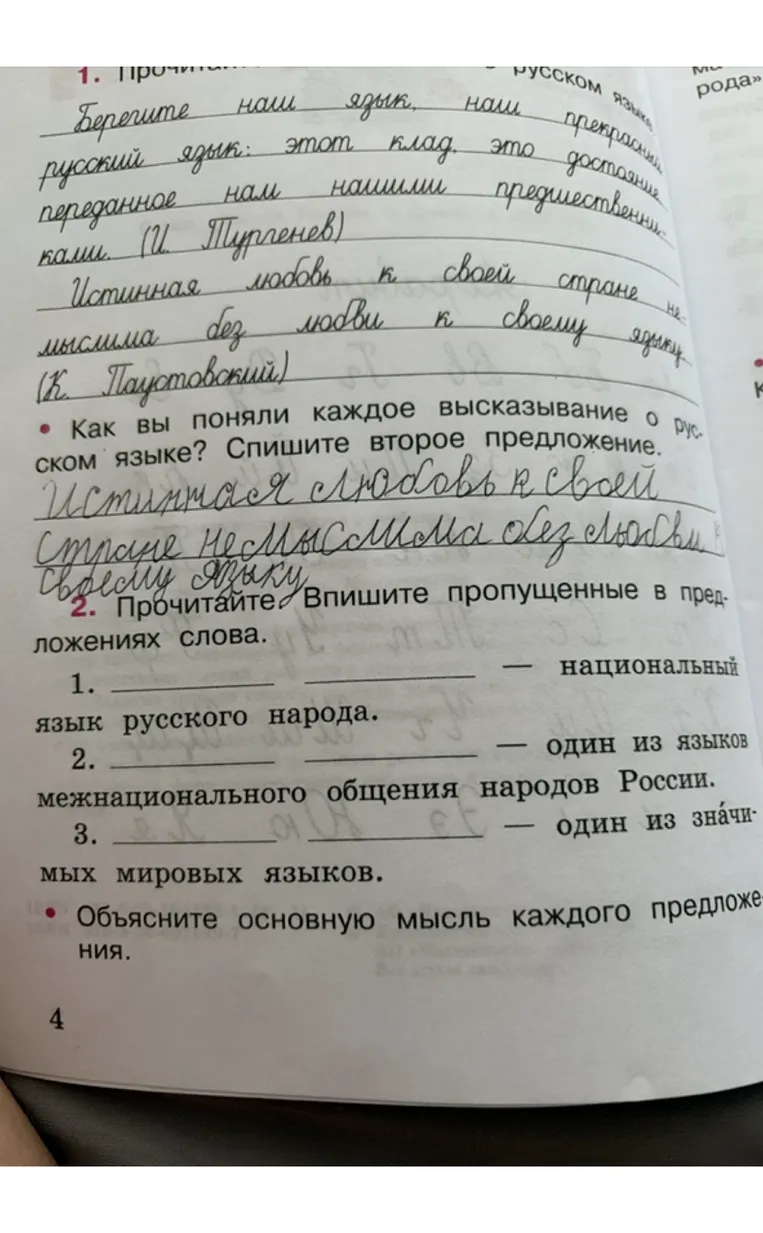 1. Прочитай русском языке
Берегите наш язык, наш прекрасный
русский язык: этот клад, это достояние,
переданное нам нашими предшественни-
ками. (И. Тургенев)
Истинная любовь к своей стране не-
мыслима без любви к своему языку.
(К. Паустовский)
• Как вы поняли каждое высказывание о рус-
ском языке? Спишите второе предложение.
Истинная любовь к своей
стране немыслима без любви к
своему языку
2. Прочитайте. Впишите пропущенные в пред-
ложениях слова.
1. ____________ ____________ — национальный
язык русского народа.
2. ____________ ____________ — один из языков
межнационального общения народов России.
3. ____________ ____________ — один из значи́-
мых мировых языков.
• Объясните основную мысль каждого предложе-
ния.
4
рода»